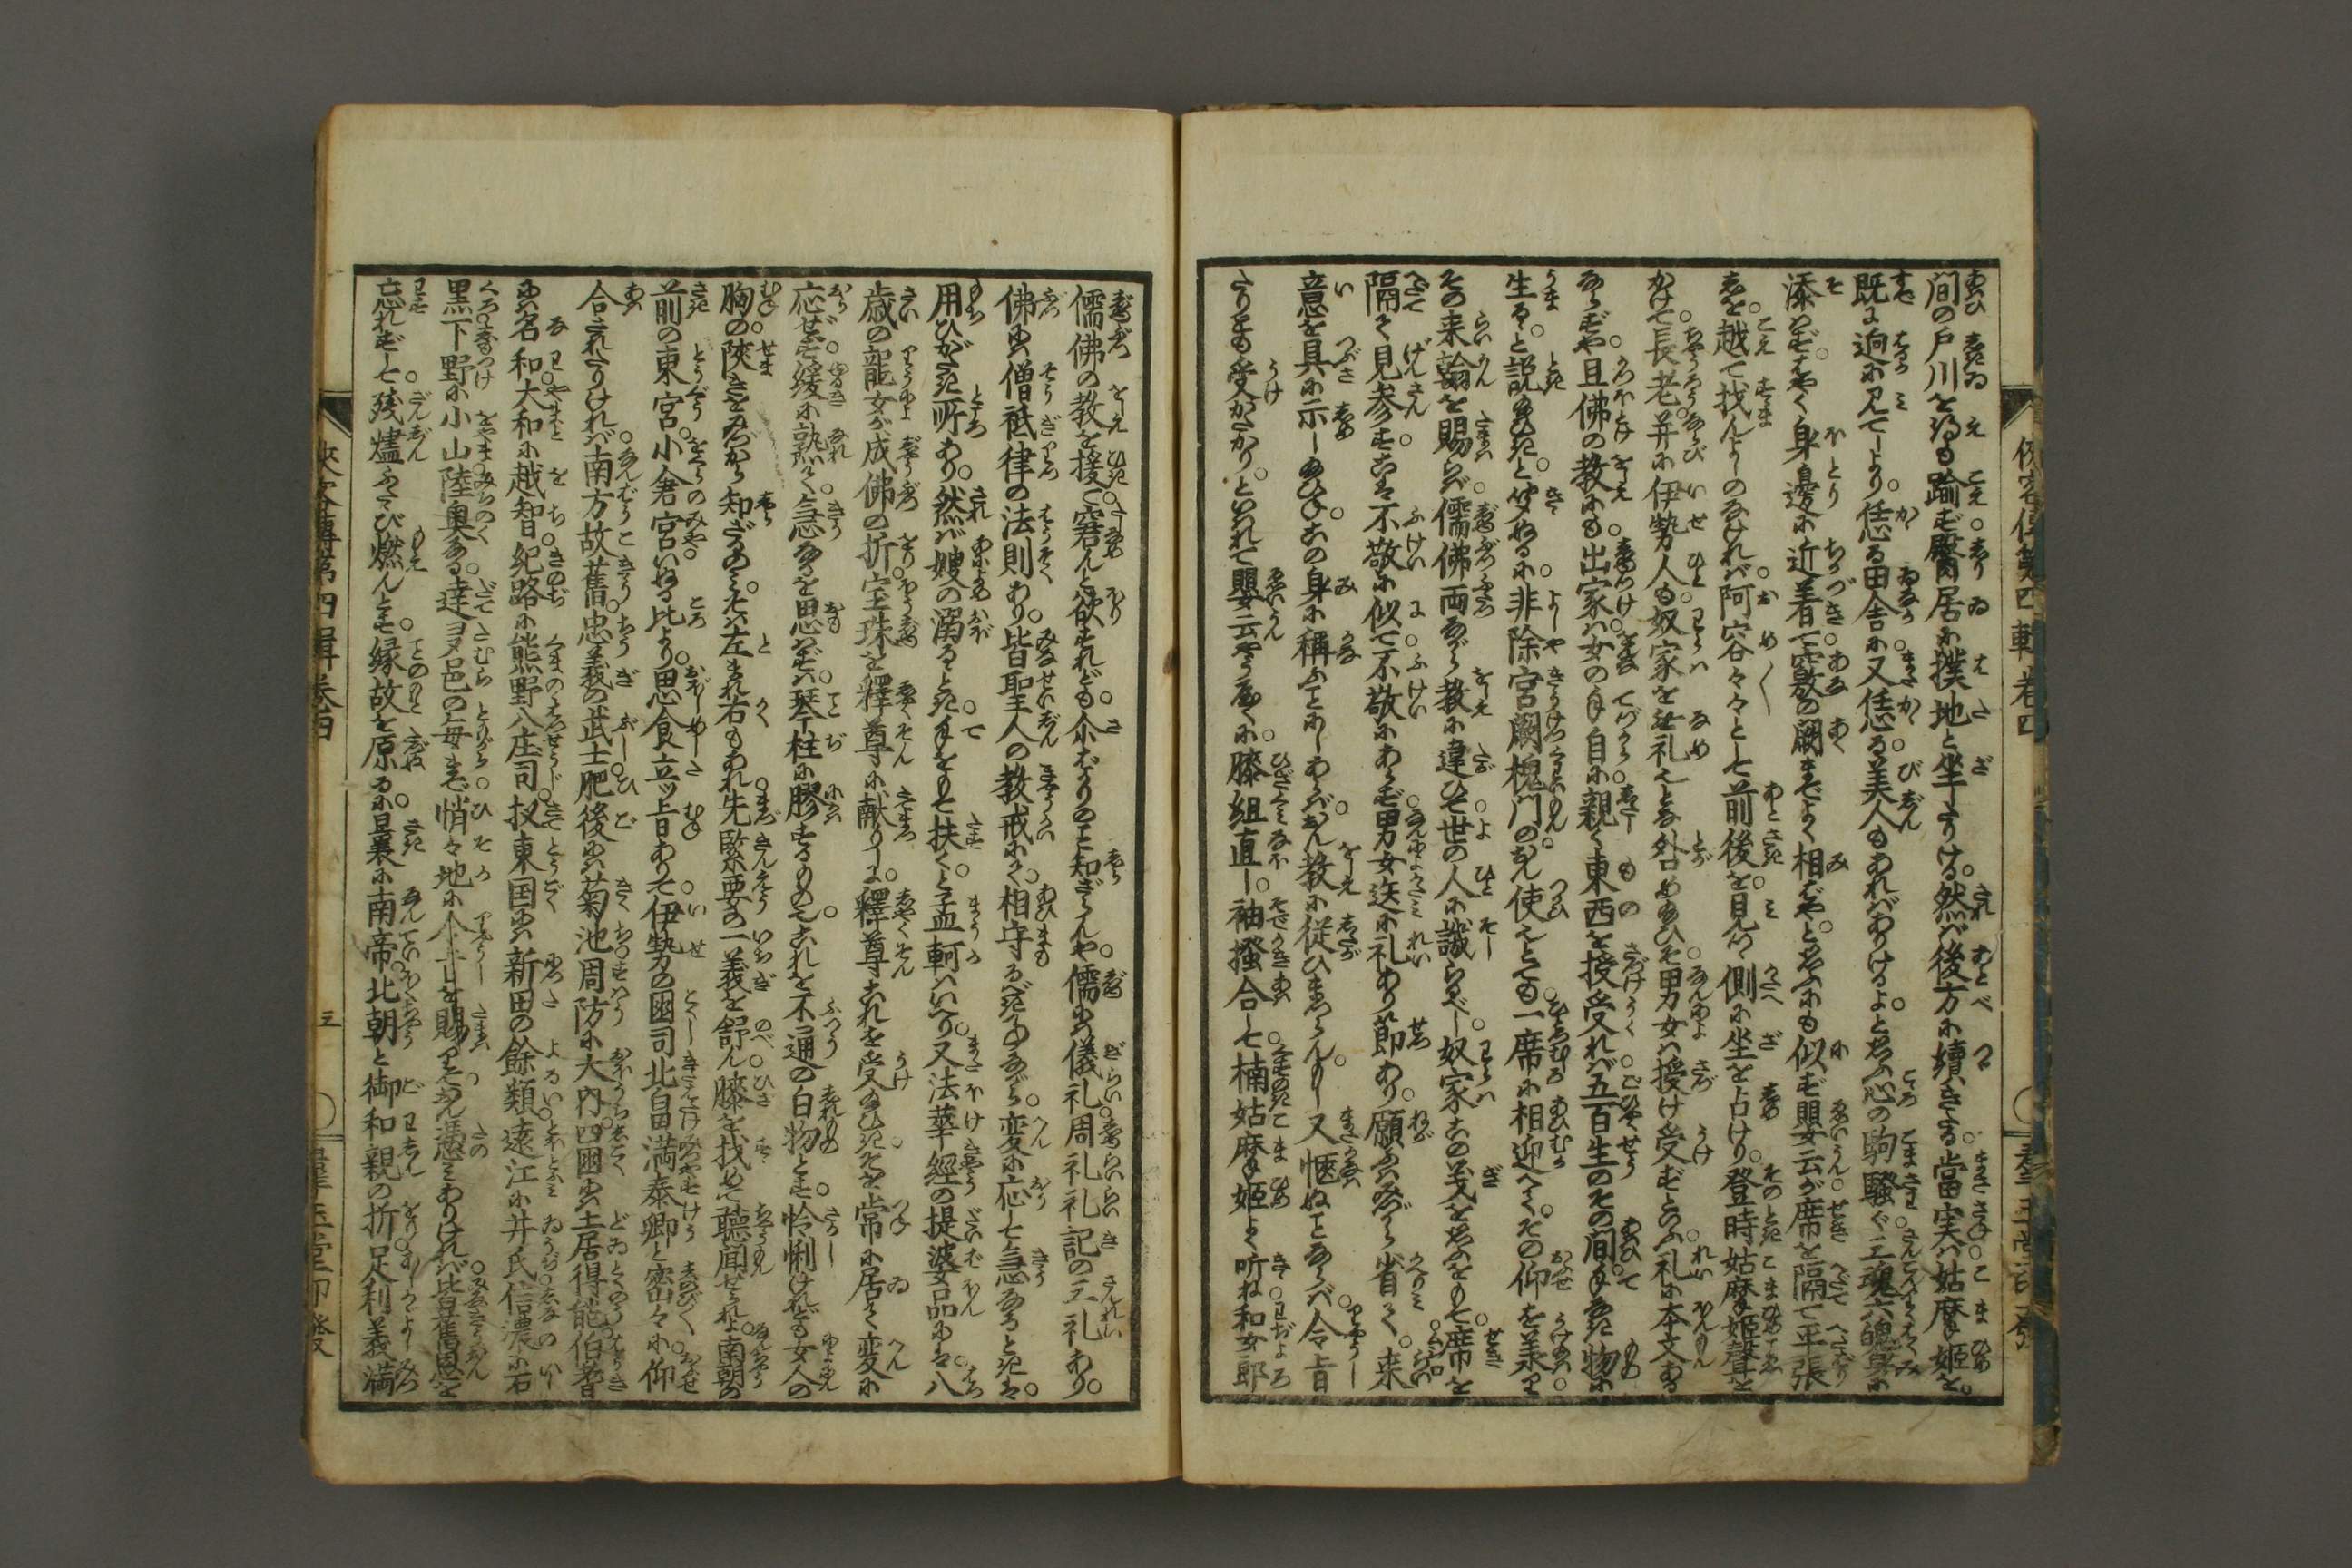 間の戸川を得も踰ず臀居に撲地と坐りける。然ば後方に續きたる。當実は姑摩姫を。
既に逈に見てしより。恁る田舎に又恁る美人もあればありけるよ。と思ふ心の駒騒ぐ三魂六魄身に
添はず。はやく身邊に近着て竅の闕までよく相ばや。と思ふにも似ず嬰云が席を隔て平張
を越て找んよしのなければ。阿容々々として前後を見つゝ側に坐を占けり。登時姑摩姫聲を
かけて。長老。并に伊勢人も奴家を無礼しとな外め給ひそ。男女は授け受ずといふ。礼に本文ある
ならずや。且佛の教にも出家は女の手自に親く東西を授受れば。五百生のその間。手なき物に
生るゝ。と説給ひき。と聞ぬるに。非除宮闕槐門のおん使なりとても。一席に相迎へて。その仰を美り
その来翰を賜らば。儒佛両ながら教に違ひて。世の人に譏らるべし。奴家この義を思ふをもて。席を
隔て見参す。こは不敬に似て不敬にあらず。男女迭に礼あり節あり。願ふはみづから省て。来
意を具に示し給ひね。この身に稱ふことにしあらば。おん教に従ひまゐらせん。又愜ぬことならば。令旨
たりとも受がたかり。といはれて嬰云やうやくに。膝組直し。袖掻合して。楠姑摩姫よく听ね。和女郎
儒佛の教を援て窘んと欲すれども。介ばかりのこと知ざらんや。儒には儀礼。周礼。礼記の三礼あり。
佛には僧祇律の法則あり。皆聖人の教戒にて。相守るべき㕝ながら。変に応して急なるときは。
用ひがたき所あり。然ば嫂の溺るゝとき。手をもて扶く。と孟軻はいへり。又法華經の提婆品には。八
歳の龍女が成佛の折。宝珠を釋尊に献りしに。釋尊これを受給ひき。そを常に居て変に
応せず。緩に熟て。急なるを思はずは。琴柱に膠するもの也。これを不通の白物とす。怜悧けれども女人の
胸の。陜きをみづから知ざるのみ。そは左まれ右もあれ。先緊要の一義を舒ん。膝を找めて聴聞せられよ。南朝の
前の東宮。小倉宮いぬる比より。思食立ッ旨ありて。伊勢の國司北畠満泰卿と密々に仰
合されたりければ。南方故舊忠義の武士。肥後には菊池。周防に大内。四國には土居得能。伯耆
には名和。大和に越智。紀路に熊野八庄司。扠東国には新田の餘類。遠江に井氏。信濃に石
黒。下野に小山。陸奥なる。達ヨタ邑の毎まで。悄々地に令旨を賜りて。おん憑みありければ。皆舊恩を
忘れずして。残燼ふたゝび燃んとす。縁故を原るに。曩に南帝。北朝と御和親の折。足利義満
侠客傳第四輯巻四
侠客傳第四輯巻四
三